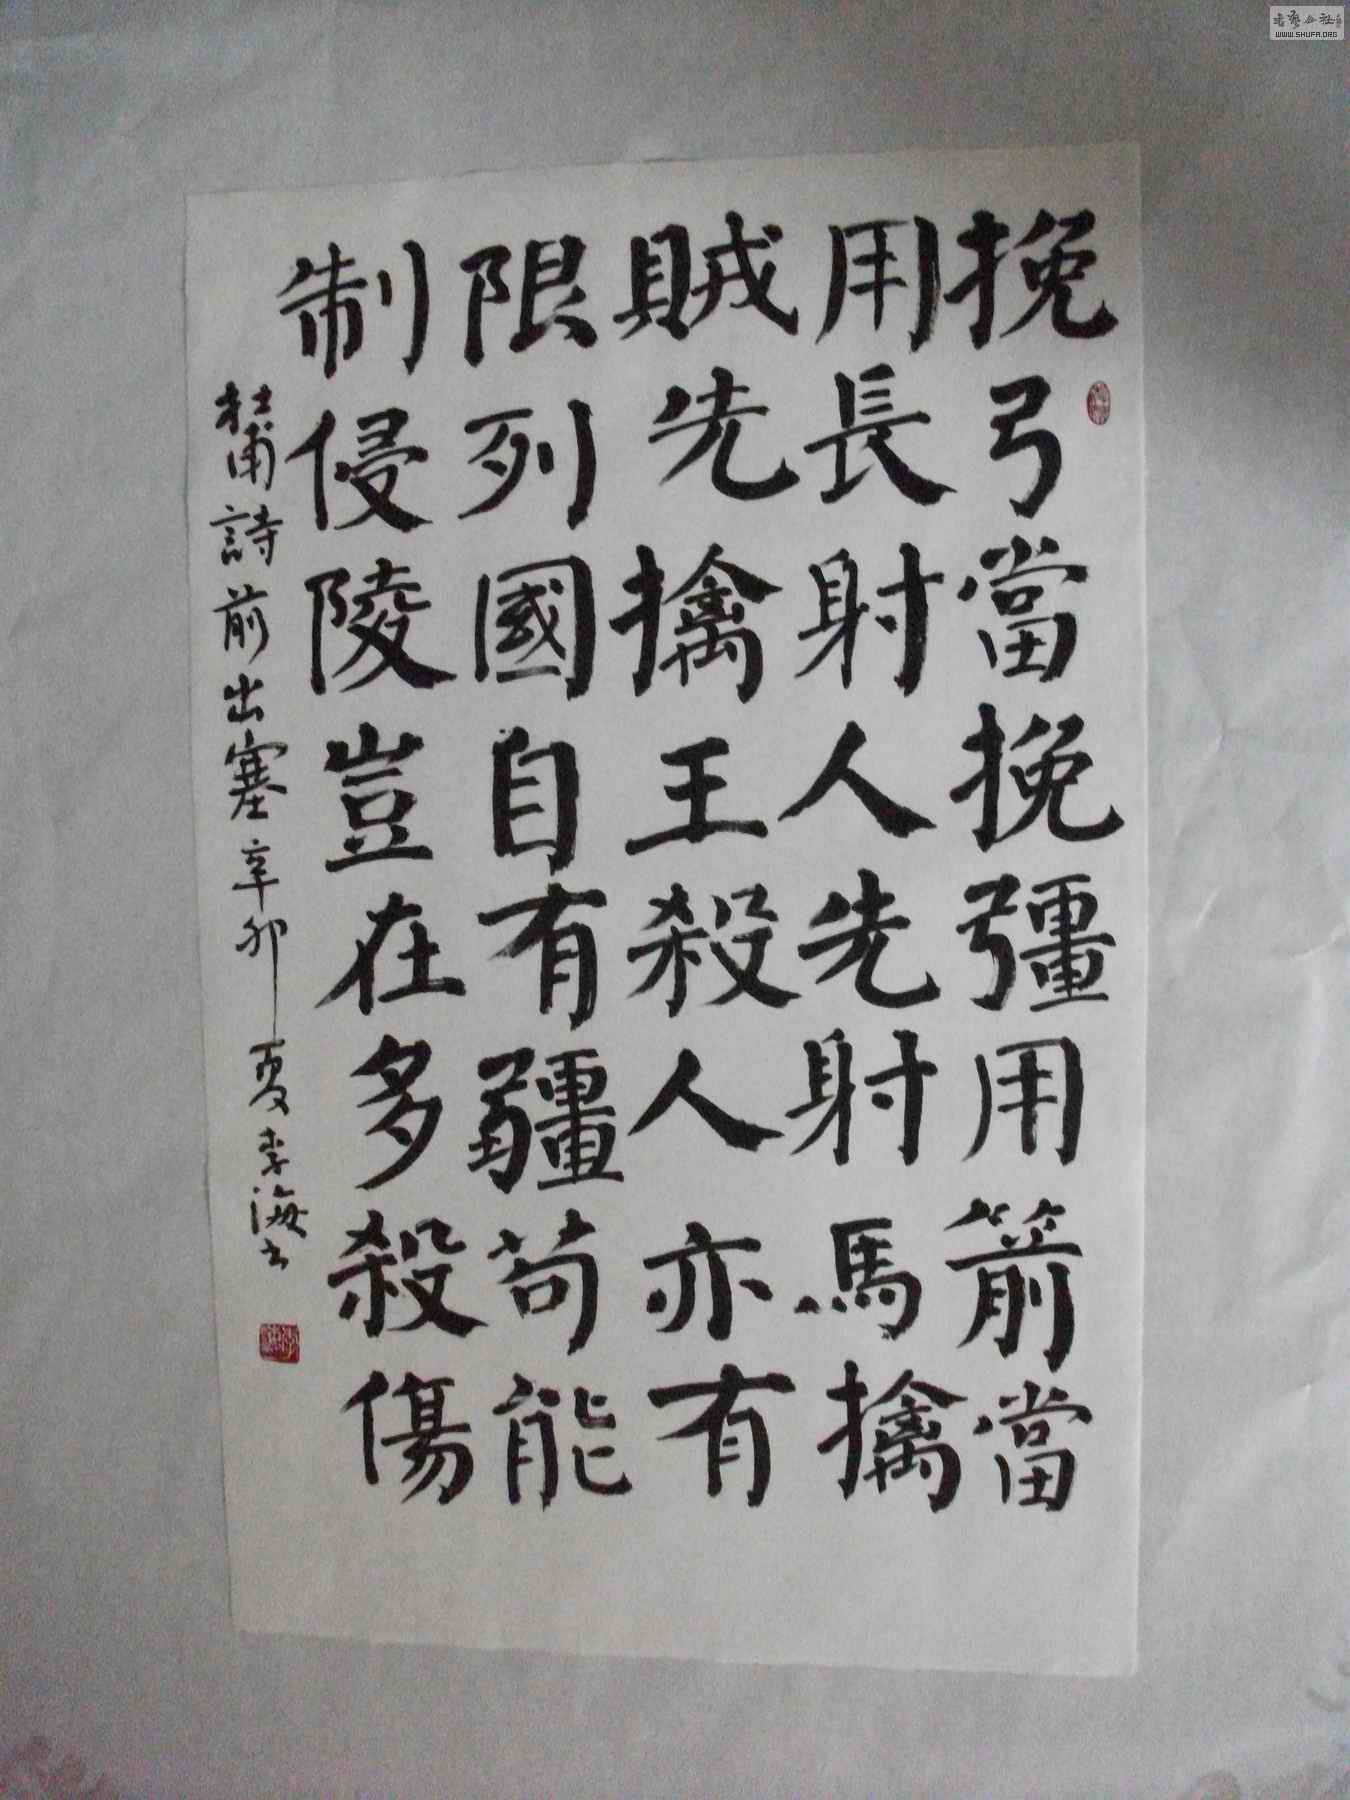 挽弓當挽彊用箭當
用長射人先射馬擒
賊先擒王殺人亦有
限列國自有疆苟能
制侵陵豈在多殺傷
杜甫詩前出塞辛卯夏李海书
WWW.SHUFA.ORG